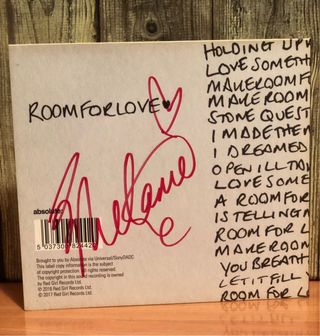 ROOMFORLOVE♥
Melanie
absolute.
HOLDING UP
LOVE SOMETH
MAKE ROOM F
MAKE ROOM
STONE QUEST
I MADE THEM
I DREAMED
OPEN ILL TA
LOVE SOME
A ROOM FOR
IS TELLING
ROOM FOR L
MAKE ROOM
YOU BREATH
LET IT FILL
ROOM FOR L
Brought to you by Absolute via Universal/Sony/DADC
This label copy information is the subject
of copyright protection. All rights reserved.
The copyright in this sound recording is owned
by Red Girl Records Ltd.
© 2016 Red Girl Records Ltd.
℗ 2017 Red Girl Records Ltd.